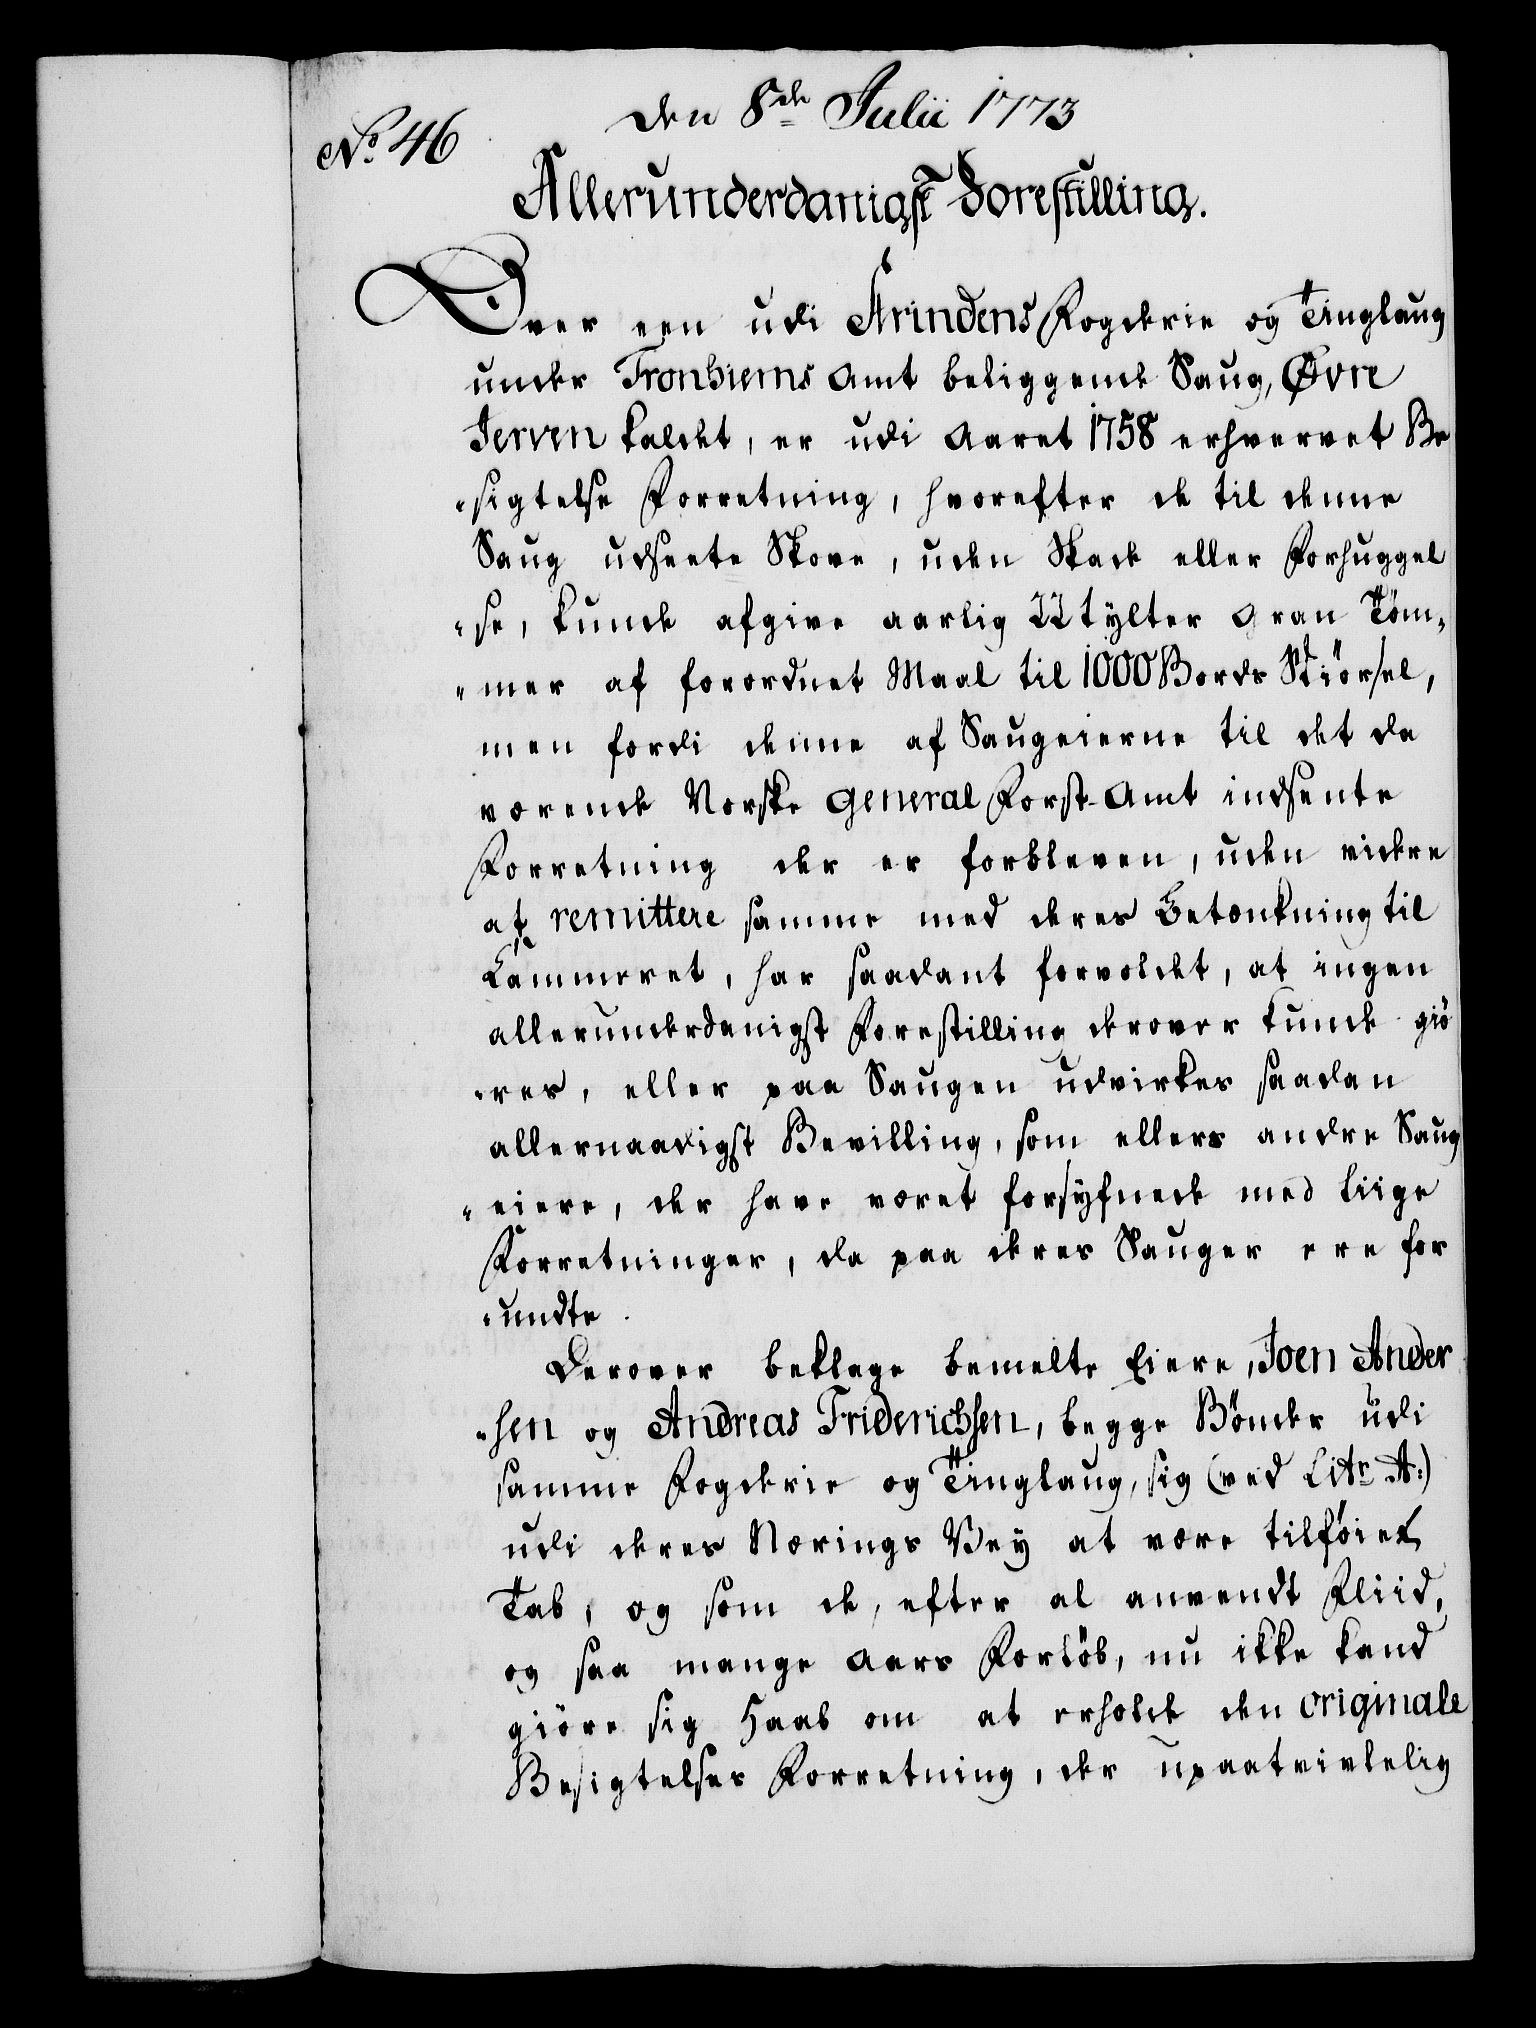 No. 46
den 8de Julii 1773
Allerunderdanigst Forestilling.
Over een udi Strindens Fogderie og Tinglaug
under Tronhiems Amt beliggende Saug, Øvre
Jerven kaldet, er udi Aaret 1758 erhvervet Be
„sigtelse Forretning, hvorefter de til denne
Saug udseete Skove, uden Skade eller Forhuggel
„se, kunde afgive aarlig 22 tylter Gran Töm„
„mer af forordnet Maal til 1000 Bords Skiörsel,
men fordi denne af Saugeierne til det da
værende Norske General Forst-Amt indsente
Forretning der er forbleven, uden videre
at remittere samme med deres Betænkning til
Cammeret, har saadant forvoldet, at ingen
allerunderdanigst Forestilling derover kunde giö
„res, eller paa Saugen udvirkes saadan
allernaadigst Bevilling, som ellers andre Saug
„eiere, der have været forsyfnede med liige
Forretninger, da paa deres Sauger ere for
„undte.
Derover beklage bemelte Eiere, Joen Ander
„sen og Andreas Friderichsen, begge Bönder udi
samme Fogderie og Tinglaug, sig (ved Litr A:)
udi deres Nærings Vey at være tilföiet
Tab, og som de, efter al anvendt Fliid,
og saa mange Aars Forlöb, nu ikke kand
giöre sig Haab om at erholde den originale
Besigtelses Forretning, der upaatvivlelig